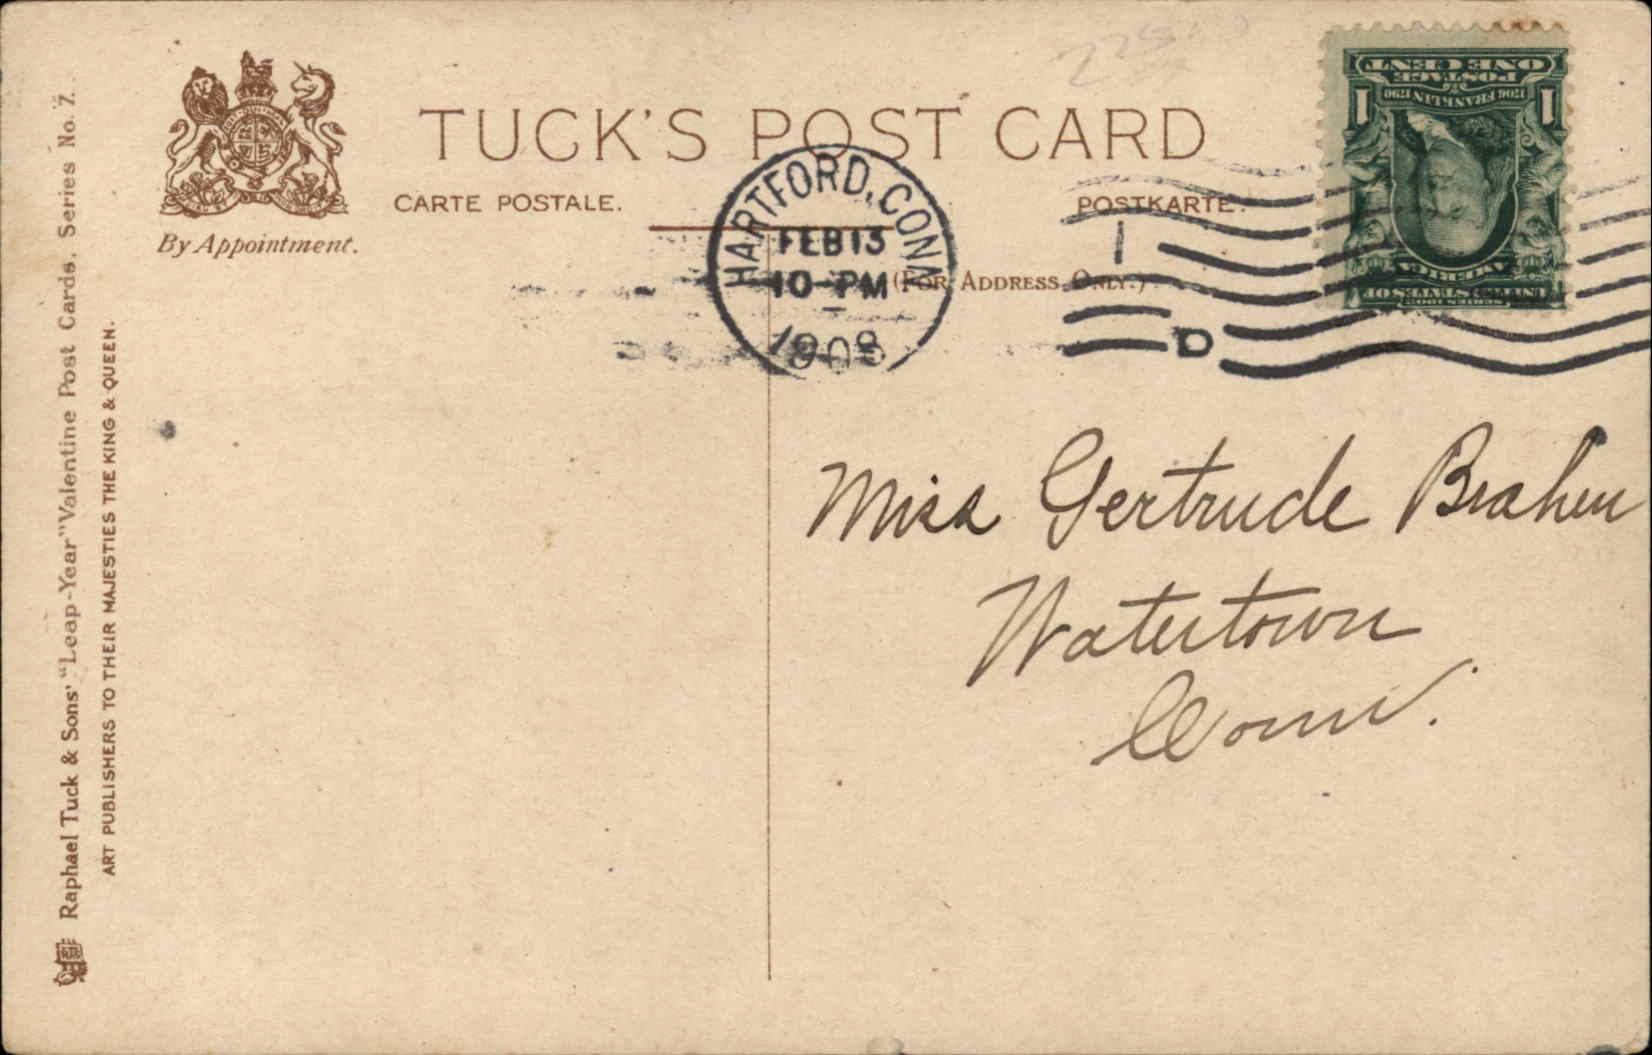 TUCK'S POST CARD
CARTE POSTALE.
POSTKARTE.
(FOR ADDRESS ONLY.)
By Appointment.
HARTFORD, CONN
FEB 13
10-PM
1908
1
D
UNITED STATES OF
AMERICA
SERIES 1902
1706 FRANKLIN 1790
1 1
POSTAGE
ONE CENT
Miss Gertrude
Watertown
Conn.
Raphael Tuck & Sons' "Leap-Year" Valentine Post Cards, Series No. 7.
ART PUBLISHERS TO THEIR MAJESTIES THE KING & QUEEN.